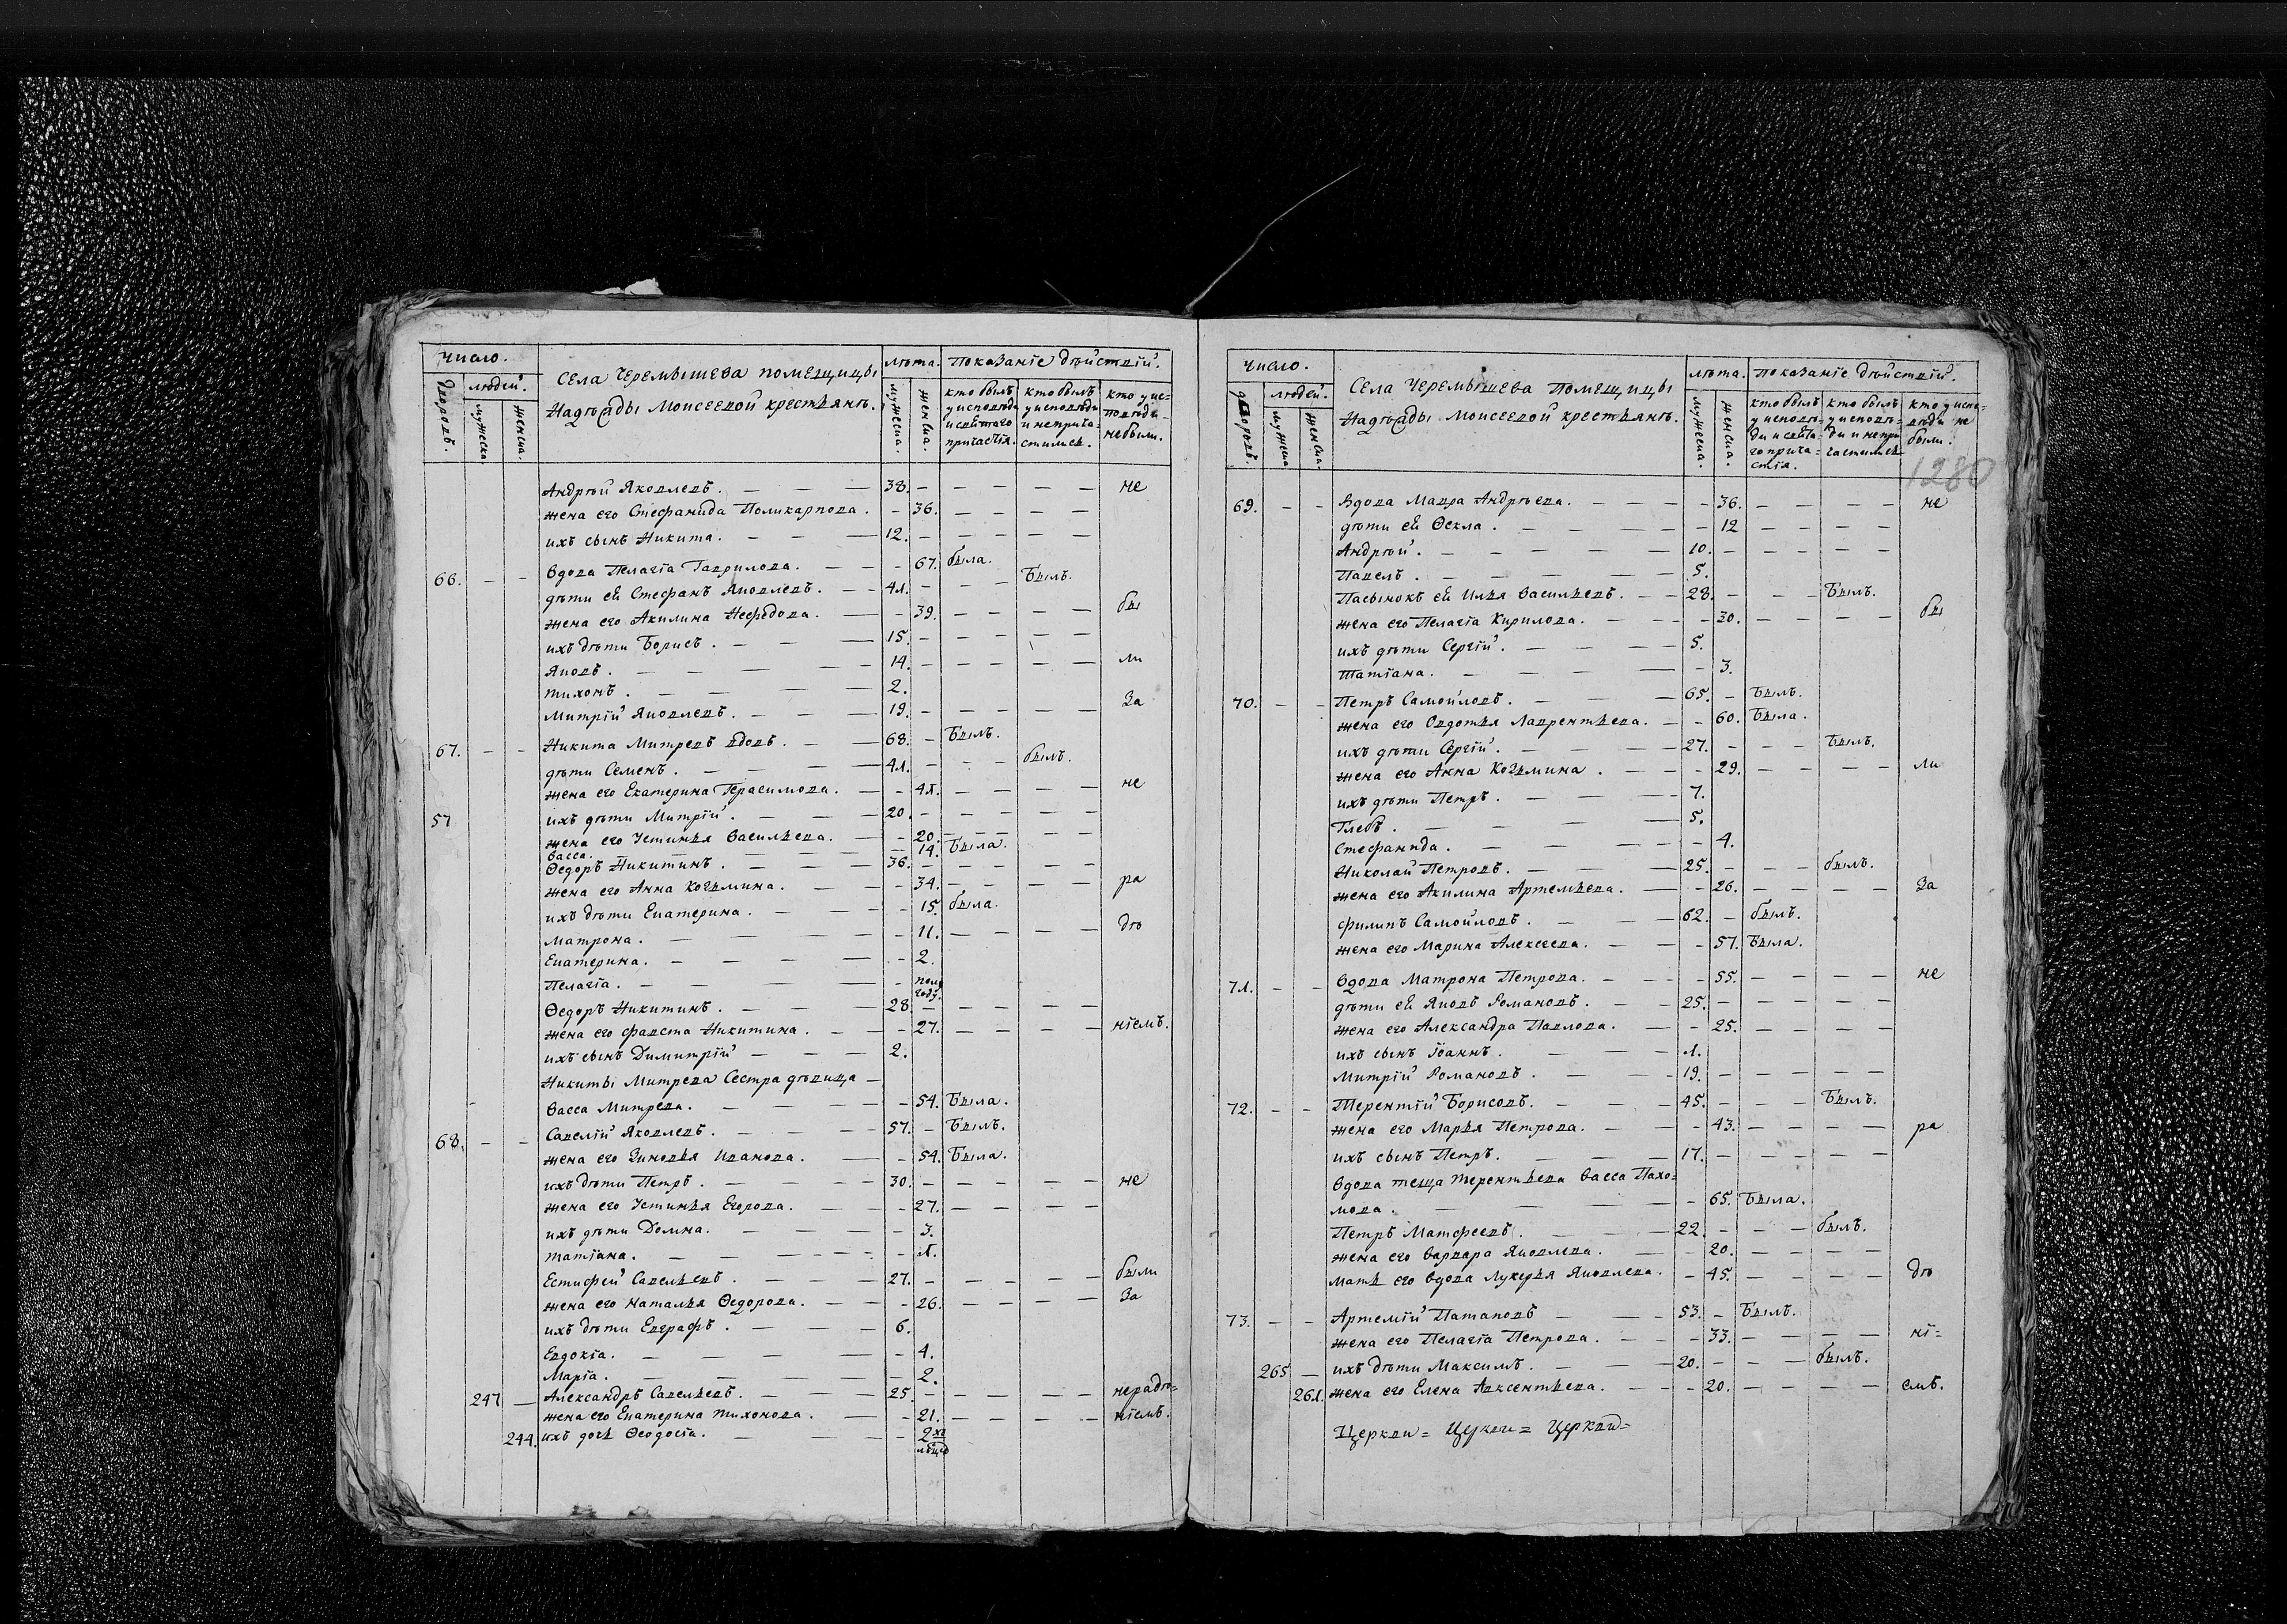 число.
Села Черемышева помещицы
лѣта. Показаніе дѣйствій.
дворовъ. людей.
Надѣжды Моисеевой крестьянъ.
мужеска. женска.
мужеска. женска.
кто былъ у исповѣди и святаго причастія.
кто былъ у исповѣди и неприча-стились.
кто у ис-повѣди небыли.
Андрѣй Яковлевъ. 38. не
жена его Стефанида Поликарпова. 36.
ихъ сынъ Никита. 12.
66. вдова Пелагія Гаврилова. 67. была.
дѣти ей Стефанъ Яковлевъ. 41. Былъ.
жена его Акилина Нефедова. 39. бы
ихъ дѣти Борисъ. 15.
Яковъ. 14. ли
тихонъ. 2.
Митрій Яковлевъ. 19. За
67. Никита Митревъ вдовъ. 68. Былъ.
дѣти Семенъ. 41. былъ.
жена его Екатерина Герасимова. 41. не
57 ихъ дѣти Митрій. 20.
жена его Устинья Васильева. 20.
Васса. 14. Была.
Ѳедоръ Никитинъ. 36.
жена его Анна Козьмина. 34. ра
ихъ дѣти Екатерина. 15. была.
Матрона. 11. дѣ
Екатерина. 2.
Пелагія. полу году.
Ѳедоръ Никитинъ. 28.
жена его фавста Никитина. 27. ніемъ.
ихъ сынъ Димитрій 2.
Никиты Митрева Сестра дѣвица
Васса Митрева. 54. Была.
68. Савелій Яковлевъ. 57. Былъ.
жена его Зиновья Иванова. 54. Была.
ихъ дѣти Петръ. 30. не
жена его Устинья Егорова. 27.
ихъ дѣти Домна. 3.
татіана. 1.
Естифей Савельевъ. 27. были
жена его Наталья Ѳедорова. 26. За
ихъ дѣти Евграфъ. 6.
Евдокія. 4.
Марія. 2.
247 Александръ Савельевъ. 25. нерадѣ=
жена его Екатерина тихонова. 21. ніемъ.
244. ихъ дочь Ѳеодосія. 2хъ мѣцо
число.
Села Черемышева Помещицы
лѣта. Показаніе дѣйствій.
дворовъ. людей.
Надѣжды Моисеевой крестьянъ.
мужеска женска.
мужеска. женска.
кто былъ у исповѣ=ди и свята=го прича=стія.
кто былъ у исповѣ=ди и непри частились
кто у испо=вѣди не были.
1280
69. Вдова Мавра Андрѣева. 36. не
дѣти ей Ѳекла. 12
Андрѣй. 10.
Павелъ. 5.
Пасынокъ ей Илья Васильевъ. 28. Былъ.
жена его Пелагія Кирилова. 30. бы
ихъ дѣти Сергій. 5.
Татіана. 3.
70. Петръ Самойловъ. 65. Былъ.
жена его Овдотья Лаврентьева. 60. Была.
ихъ дѣти Сергій. 27. Былъ.
жена его Анна Козьмина. 29. ли
ихъ дѣти Петръ. 7.
Глебъ. 5.
Стефанида. 4.
Николай Петровъ. 25. былъ.
жена его Акилина Артемьева. 26. За
филипъ Самойловъ. 62. былъ.
жена его Марина Алексеева. 57. Была.
71. Вдова Матрона Петрова. 55. не
дѣти ей Яковъ Романовъ. 25.
жена его Александра Павлова. 25.
ихъ сынъ Іоаннъ. 1.
Митрій Романовъ. 19.
72. Терентій Борисовъ. 45. Былъ.
жена его Марья Петрова. 43. ра
ихъ сынъ Петръ. 17.
Вдова теща терентьева Васса Пахо=
мова. 65. Была.
Петръ Матфеевъ. 22. былъ.
жена его Варвара Яковлева. 20.
Мать его вдова Лукерья Яковлева. 45. дѣ
73. Артемій Патаповъ 53. Былъ.
жена его Пелагія Петрова. 33. ні=
265 ихъ дѣти Максимъ. 20. былъ.
261. жена его Елена Авксентьева. 20. емъ.
Церкви = Церкви = Церкви=